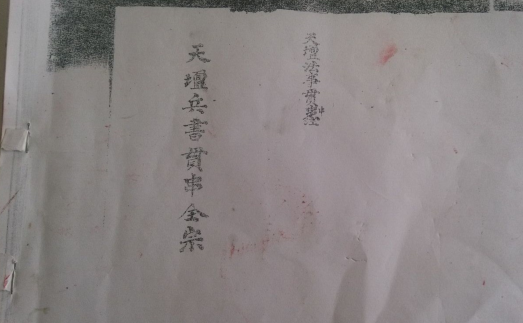 天壇法事貫
天壇兵書貫串全宗